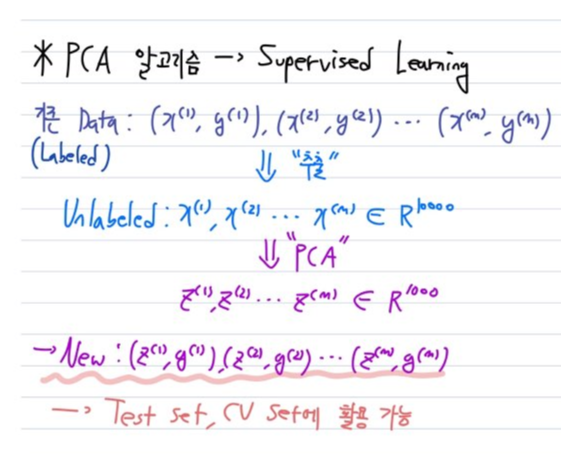 * PCA 알고리즘 → Supervised Learning
기존 Data : (x⁽¹⁾, y⁽¹⁾), (x⁽²⁾, y⁽²⁾) ⋯ (x⁽ᵐ⁾, y⁽ᵐ⁾)
(Labeled)
⇓ "추출"
Unlabeled : x⁽¹⁾, x⁽²⁾ ⋯ x⁽ᵐ⁾ ∈ R¹⁰⁰⁰⁰
⇓ "PCA"
z⁽¹⁾, z⁽²⁾ ⋯ z⁽ᵐ⁾ ∈ R¹⁰⁰⁰
→ New : (z⁽¹⁾, y⁽¹⁾), (z⁽²⁾, y⁽²⁾) ⋯ (z⁽ᵐ⁾, y⁽ᵐ⁾)
→ Test set, CV set에 활용 가능